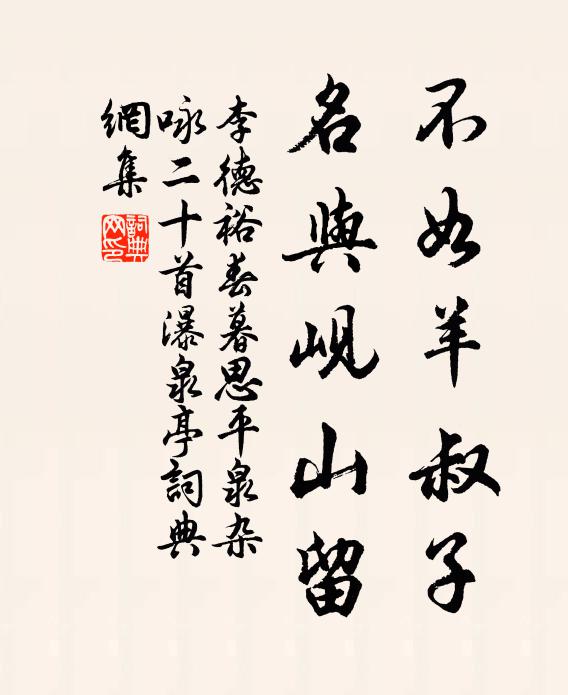 不如羊叔子
名與峴山留
李德裕春暮思平泉杂
咏二十首瀑泉亭詞典
網集
詞典
网印